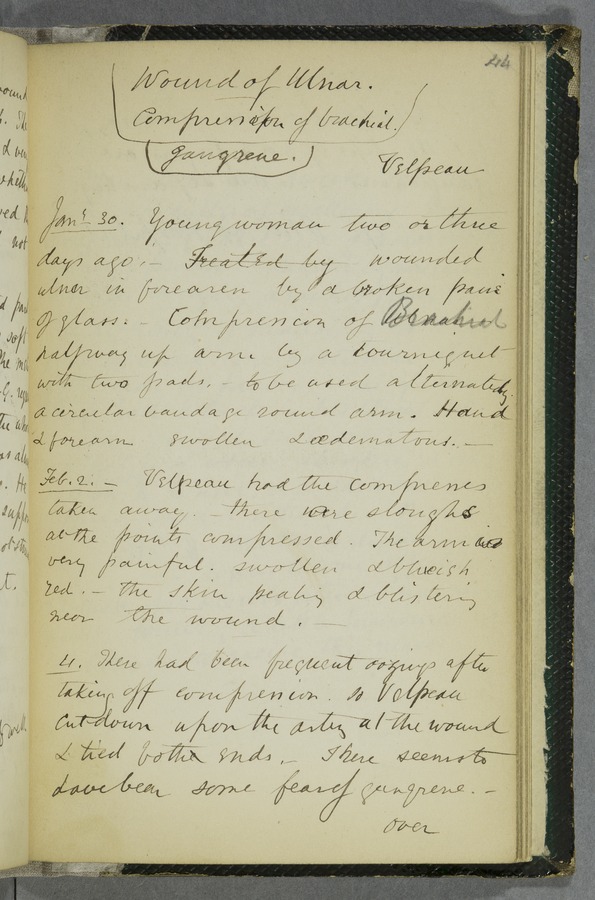 44
Wound of Ulnar.
Compression of brachial.
gangrene.
Velpeau
Jany. 30. Young woman two or three
days ago :- Treated by wounded
ulner in forearm by a broken pane
of glass. - Compression of Brachial
halfway up arm by a tourniquet
with two pads. - to be used alternately.
a circular bandage round arm. Hand
& forearm swollen & œdematous. -
Feb. 2. - Velpeau had the compresses
taken away. - there were sloughs
at the points compressed. The arm was
very painful. swollen & blueish
red. - the skin pealing & blistering
near the wound. -
4. There had been frequent oozings after
taking off compression. so Velpeau
cut down upon the artery at the wound
& tied bothe ends. - There seems to
have been some fear of gangrene. -
over